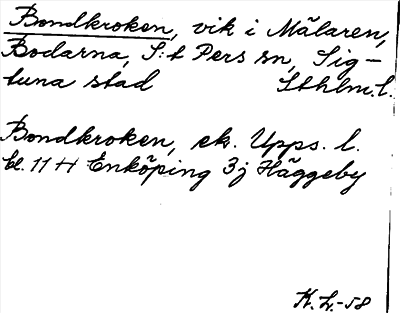 Bondkroken, vik i Mälaren,
Bodarna, S:t Pers sn, Sig-
tuna stad Sthlm. l.
Bondkroken, ek. Upps. l.
bl. 11 H Enköping 3j Häggeby
K.H.-58